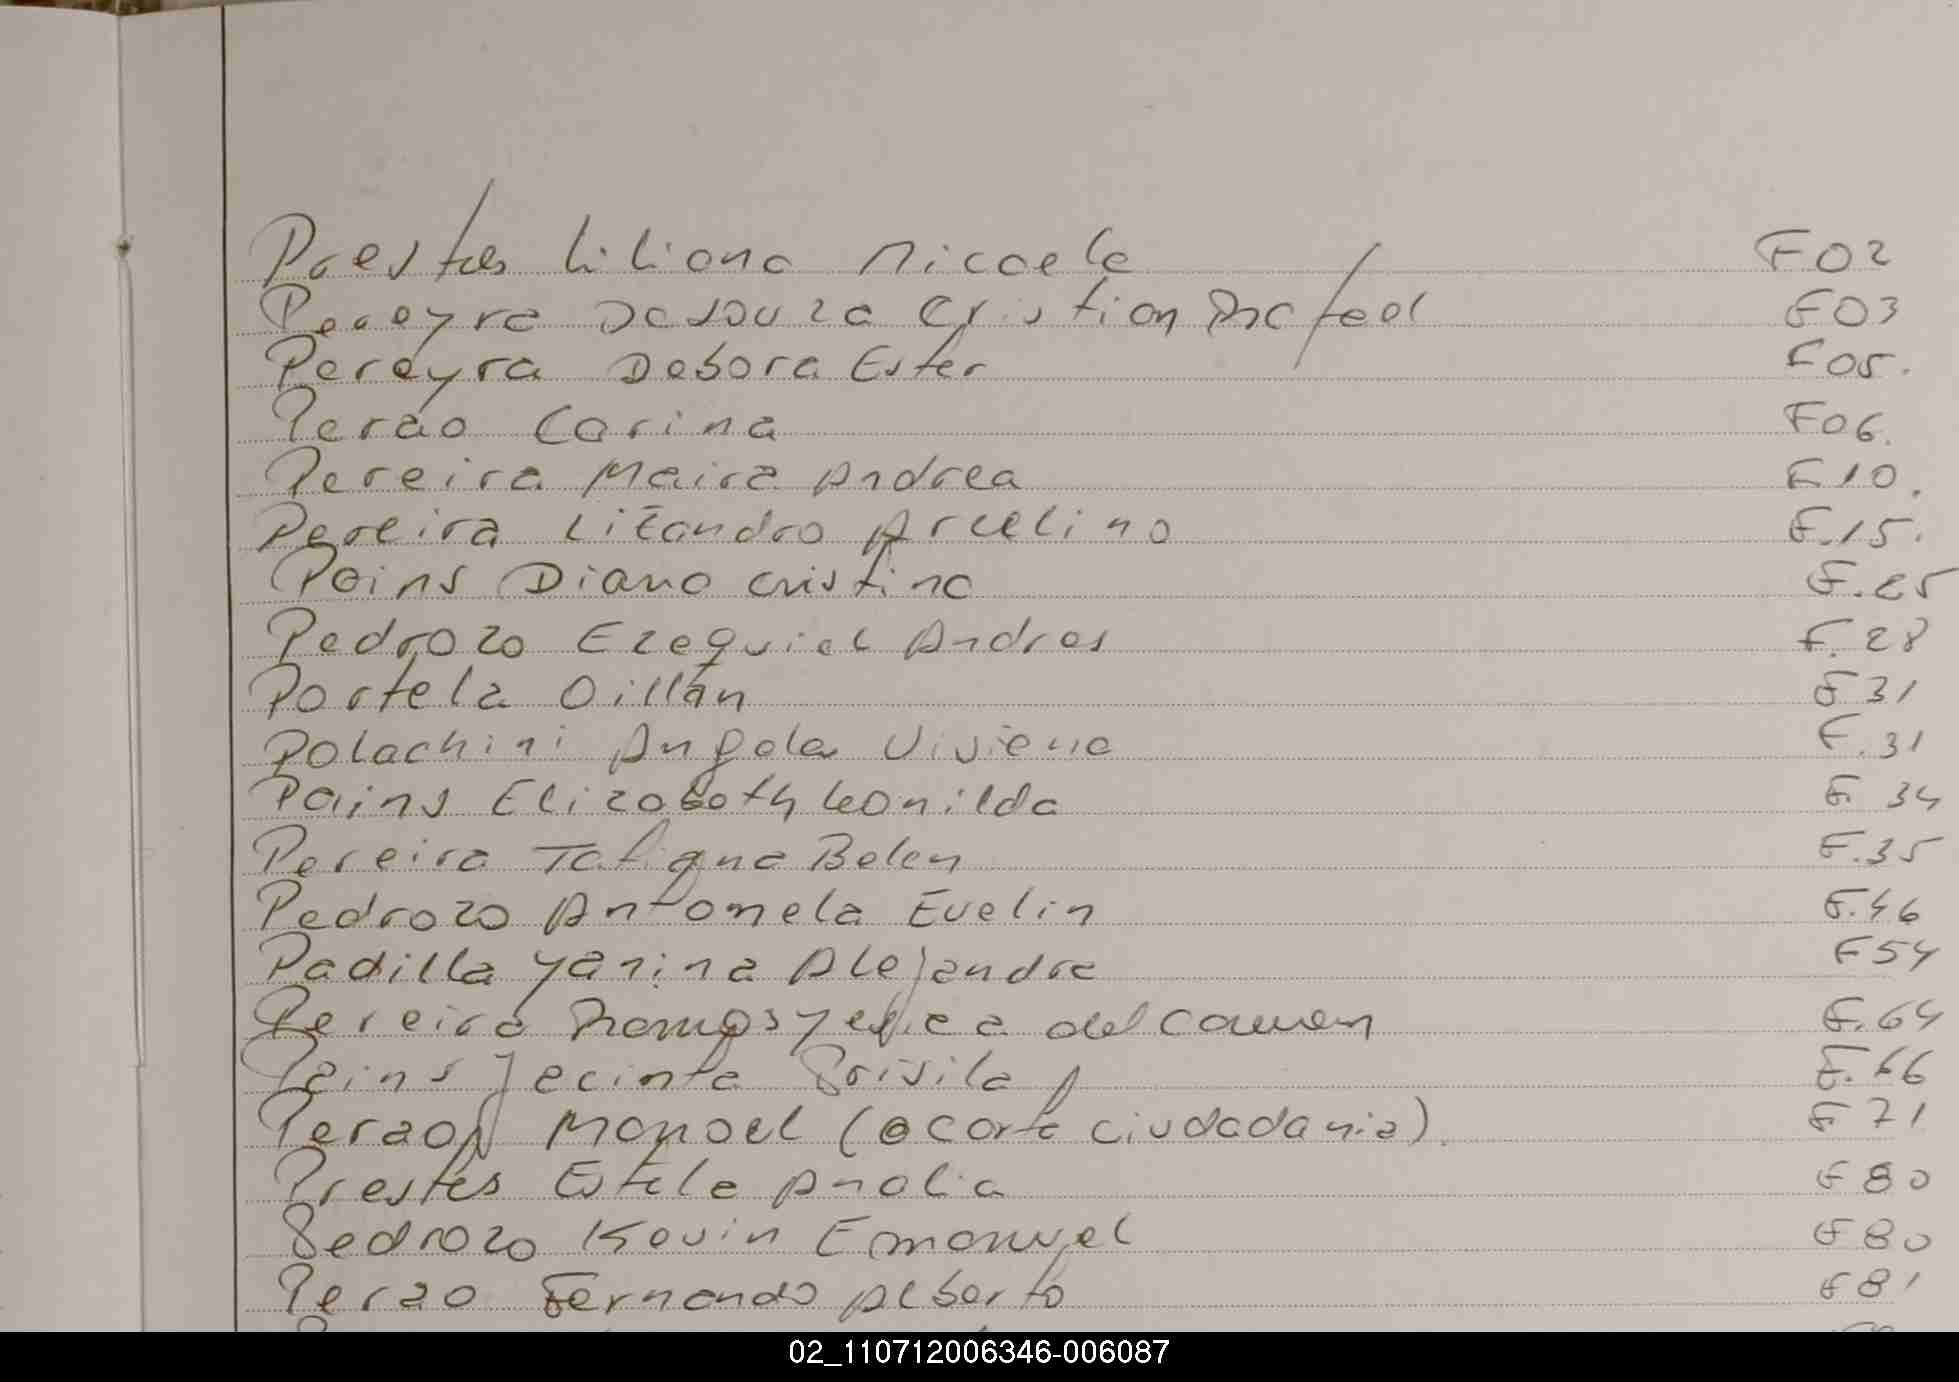 Prestes Liliana Micaela F02
Pereyra Dasouza Cristian Rafael F03
Pereyra Debora Ester F05.
Perao Carina F06.
Pereira Maira Andrea F10.
Pereira Litandro Arcelino F.15.
Pains Diana Cristina F.25
Pedrozo Ezequiel Andres F.28
Portela Dillan F31
Polachini Angela Viviana F.31
Pains Elizabeth Leonilda F 34
Pereira Tatiana Belen F.35
Pedrozo Antonela Evelin F.46
Padilla Yanina Alejandra F54
Pereira Ramos Yesica del Carmen F.64
Pains Jacinta Prisila F.66
Perao Manoel (a Carta Ciudadania). F 71
Prestes Estela Analia F 80
Pedrozo Kevin Emanuel F 80
Perao Fernando Alberto F 81
02_110712006346-006087